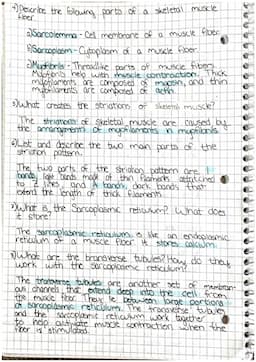 Describe the following parts of a skeletal muscle
fiber.
a) Sarcolemma - Cell membrane of a muscle fiber
b) Sarcoplasm - Cytoplasm of a muscle fiber.
c) Myofibrils - Threadlike parts of muscle fibers.
Myofibrils help with muscle contraction. Thick
myofilaments are composed of myosin, and thin
myofilaments are composed of actin.
What creates the striations of skeletal muscle?
The striations of skeletal muscle are caused by
the arrangements of myofilaments in myofibrils.
List and describe the two main parts of the
striation pattern.
The two parts of the striation pattern are I
bands, light bands made of thin filaments attached
to Z lines, and A bands, dark bands that
extend the length of thick filaments.
What is the sarcoplasmic reticulum? What does
it store?
The sarcoplasmic reticulum is like an endoplasmic
reticulum of a muscle fiber. It stores calcium.
What are the transverse tubules? How do they
work with the sarcoplasmic reticulum?
The transverse tubules are another set of membran-
ous channels that extend deep into the cell from
the muscle fiber. They lie between large portions
of sarcoplasmic reticulum. The transverse tubules
and the sarcoplasmic reticulum work together
to help activate muscle contraction when the
fiber is stimulated.